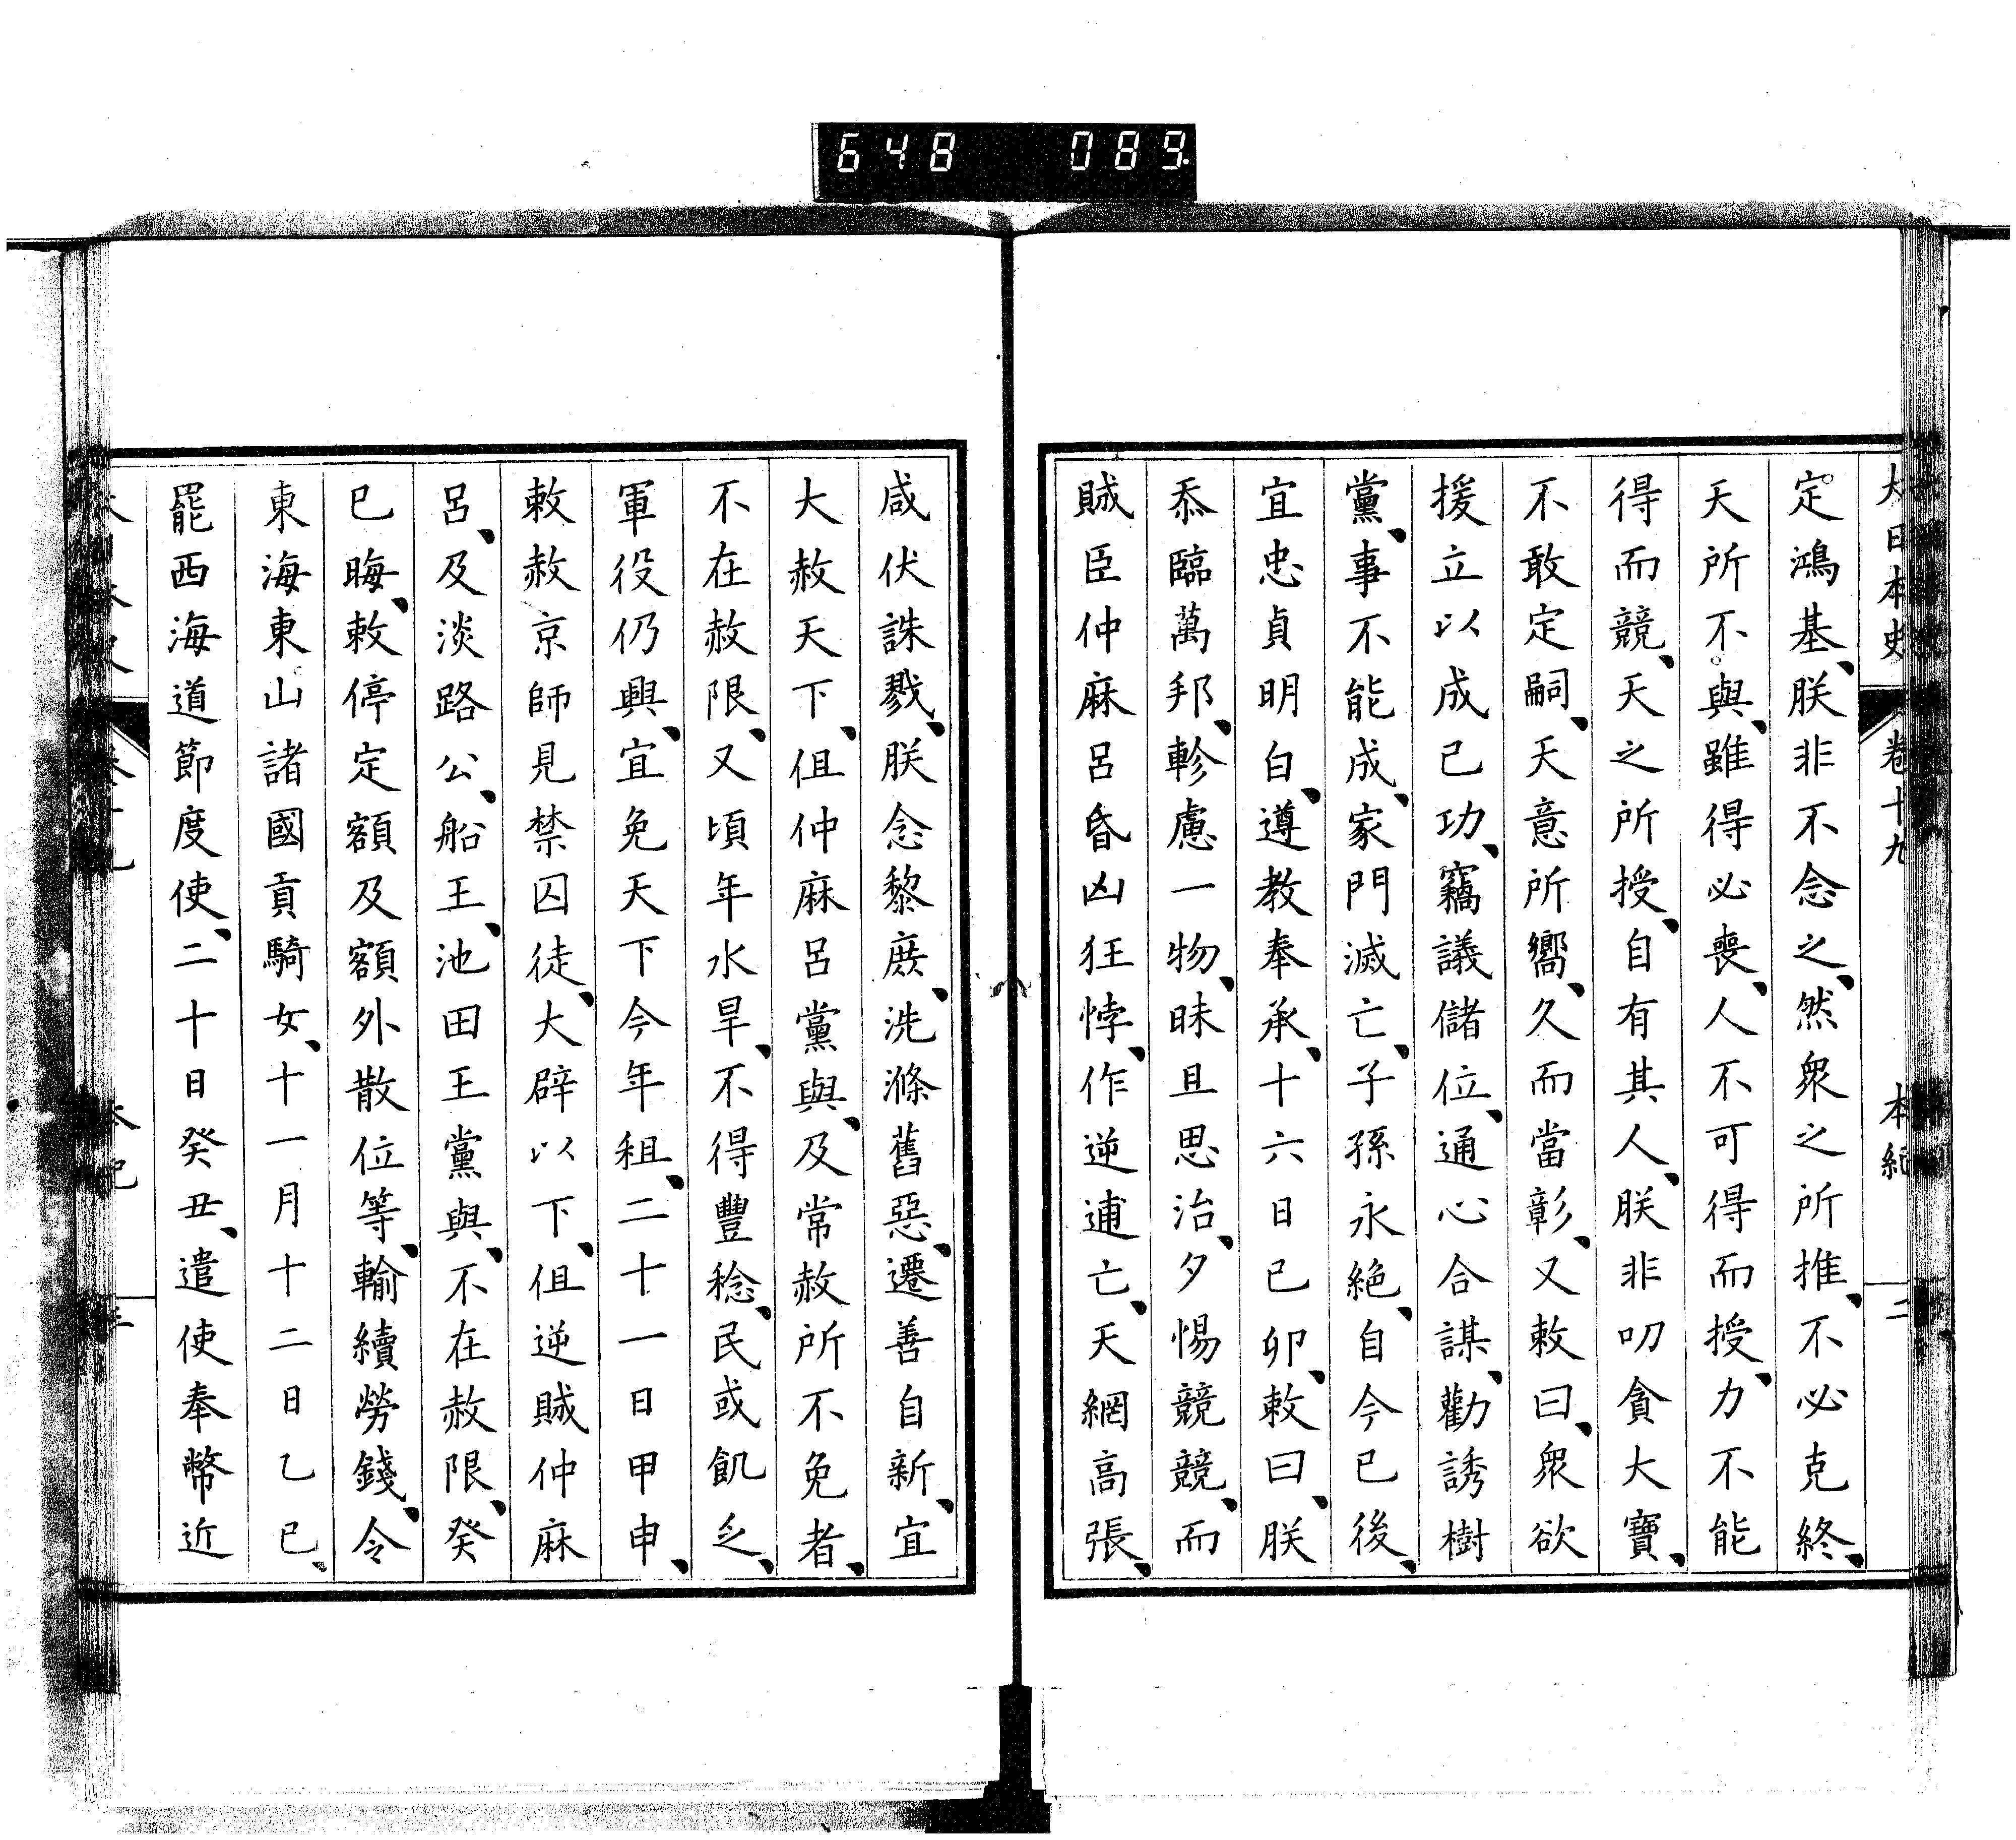 648 089.
大日本史 卷十九 本紀 二
定鴻基、朕非不念之、然衆之所推、不必克終、
天所不與、雖得必喪、人不可得而授、力不能
得而競、天之所授、自有其人、朕非叨貪大寶、
不敢定嗣、天意所嚮、久而當彰、又敕曰、衆欲
援立以成己功、竊議儲位、通心合謀、勸誘樹
黨、事不能成、家門滅亡、子孫永絶、自今已後、
宜忠貞明白、遵教奉承、十六日己卯、敕曰、朕
忝臨萬邦、軫慮一物、昧旦思治、夕惕競競、而
賊臣仲麻呂昏凶狂悖、作逆逋亡、天網高張、
咸伏誅戮、朕念黎庶、洗滌舊惡、遷善自新、宜
大赦天下、但仲麻呂黨與、及常赦所不免者、
不在赦限、又頃年水旱、不得豐稔、民或飢乏、
軍役仍興、宜免天下今年租、二十一日甲申、
敕赦京師見禁囚徒、大辟以下、但逆賊仲麻
呂、及淡路公、船王、池田王黨與、不在赦限、癸
巳晦、敕停定額及額外散位等、輸續勞錢、令
東海東山諸國貢騎女、十一月十二日乙巳、
罷西海道節度使、二十日癸丑、遣使奉幣近